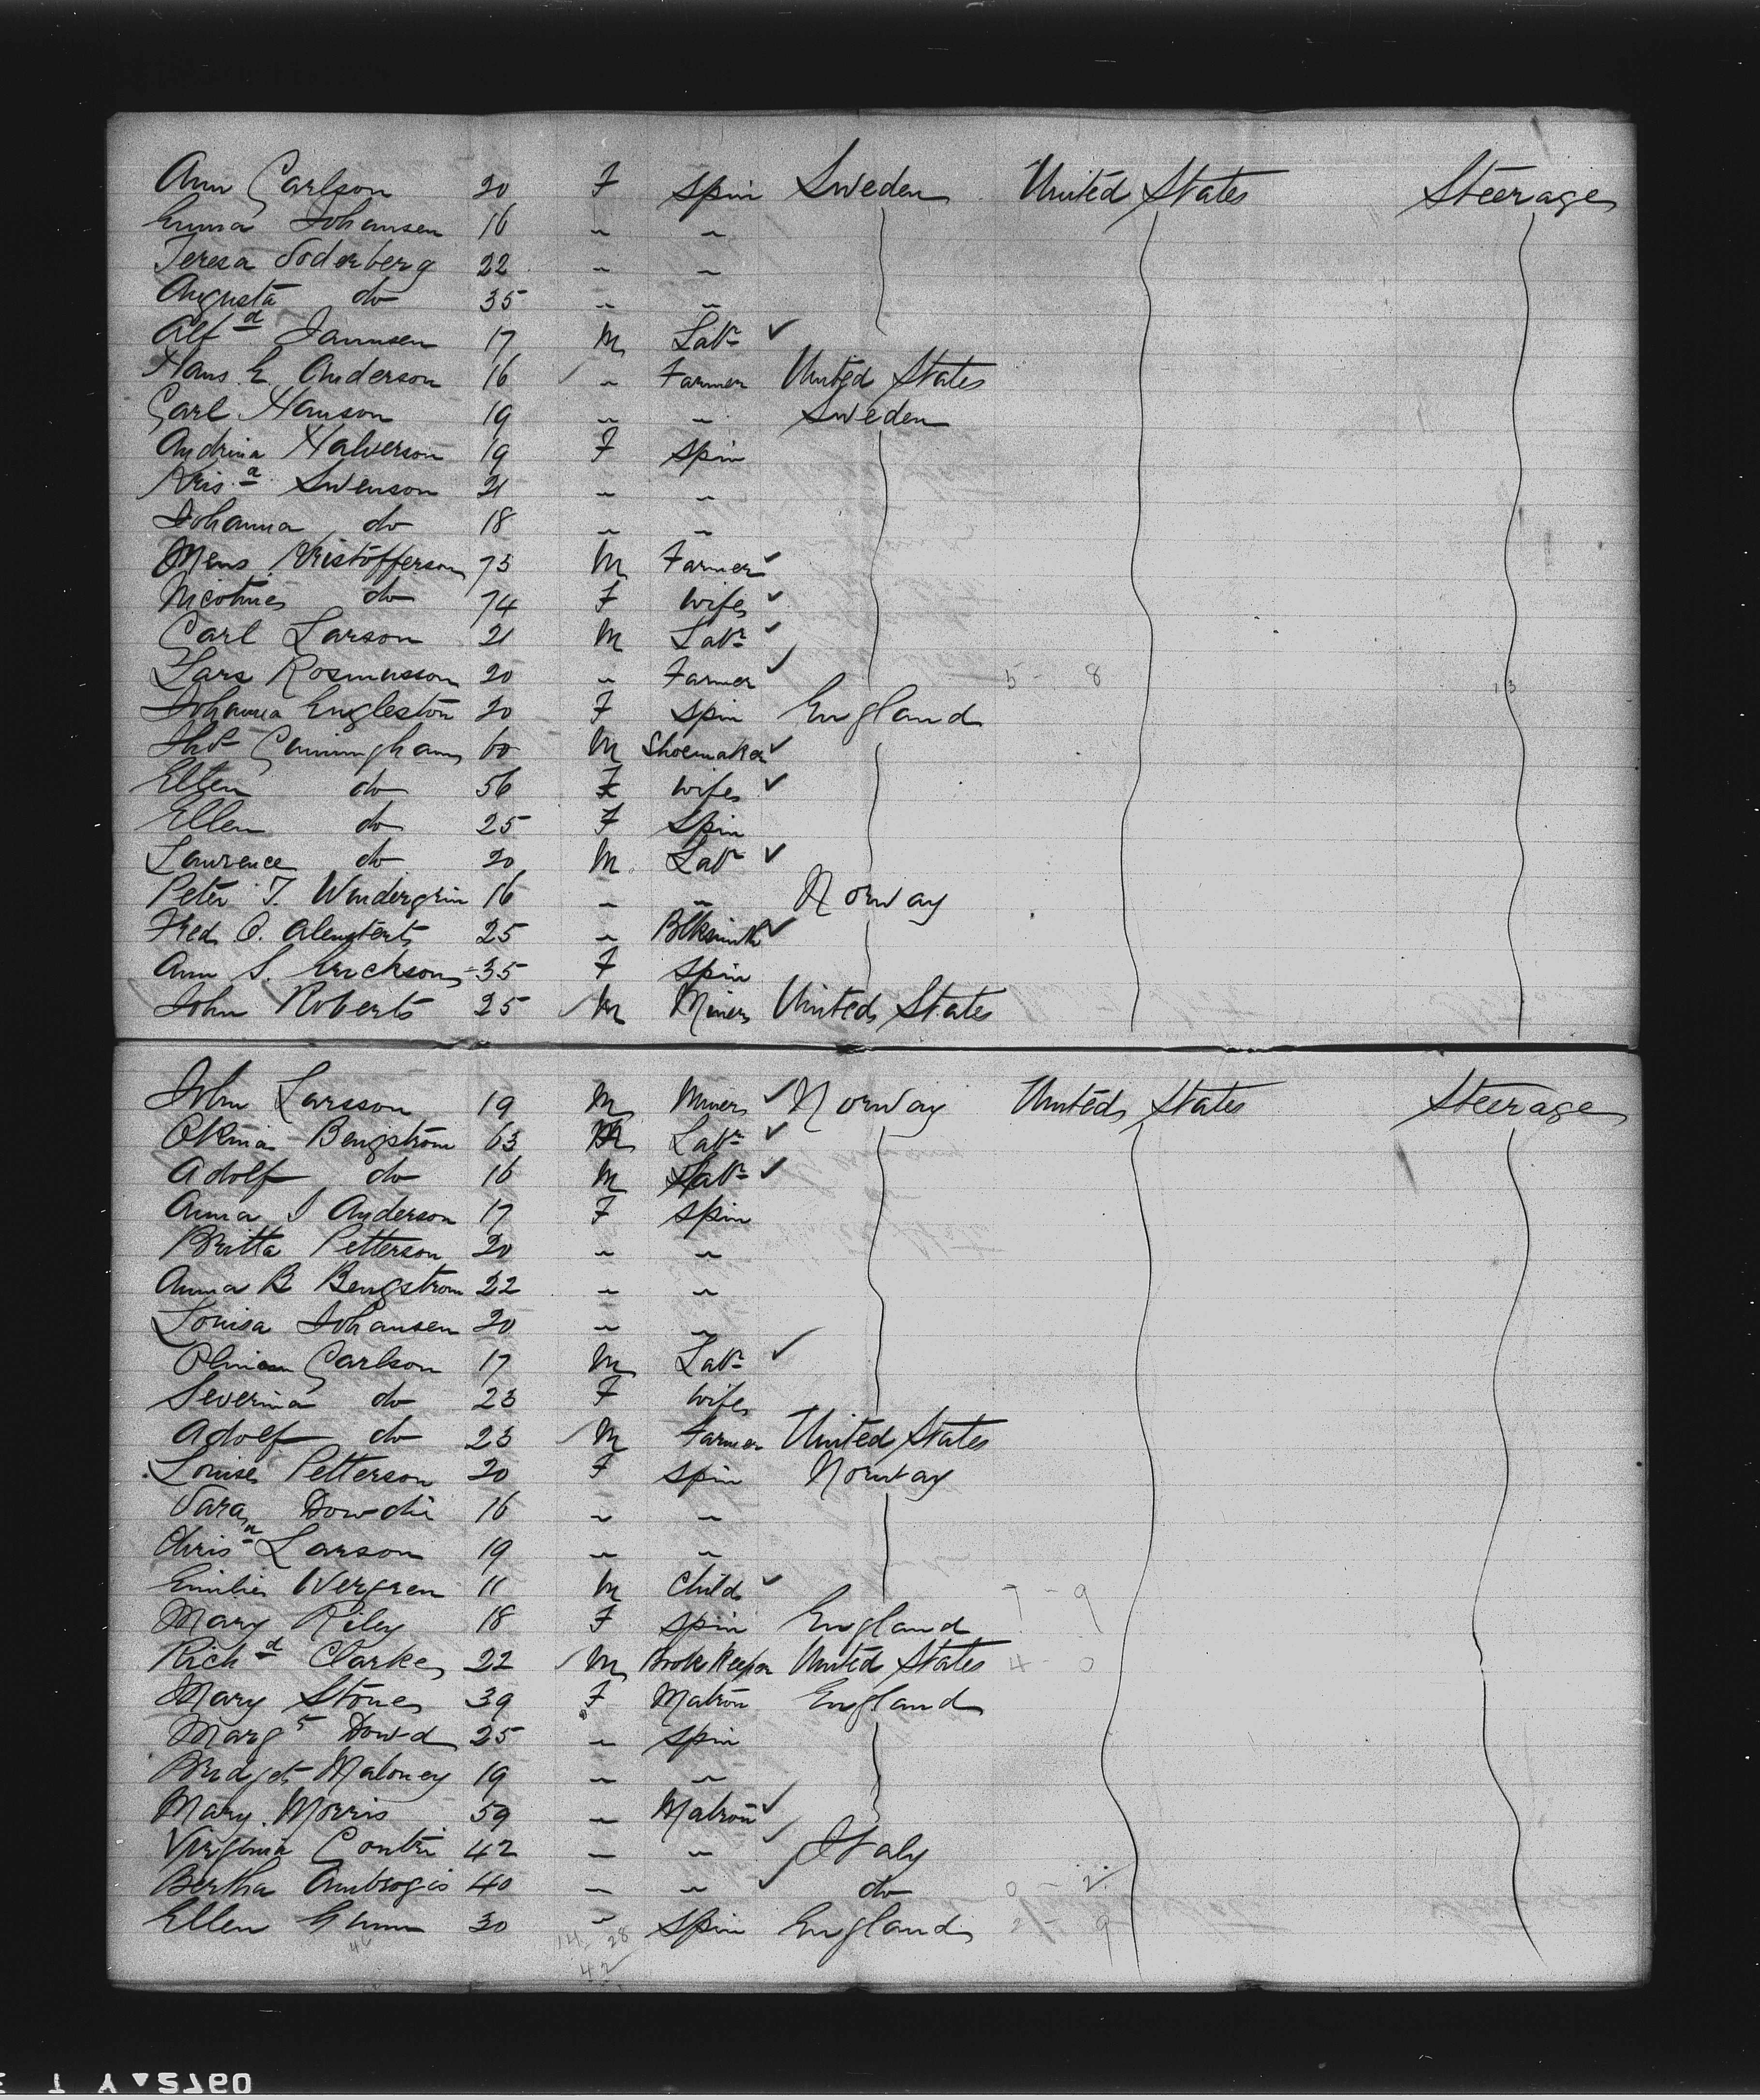 Ann Carlson 20 F Spin Sweden United States Steerage
Emma Johansen 16 " "
Teresa Soderberg 22 " "
Augusta do 35 " "
Alfd Jannsen 17 M Labr ✓
Hans E. Anderson 16 " Farmer United States
Carl Hanson 19 " " Sweden
Andrina Halverson 19 F Spin
Krisa Swenson 21 " "
Johanna do 18 " "
Mens Kristofferson 75 M Farmer ✓
do 74 F Wife ✓
Carl Larson 21 M Labr ✓
Lars Rosmusson 20 " Farmer ✓ 5 - 8
Johanna Engleston 20 F Spin England
Thos Cunningham 60 M Shoemaker ✓
Ellen do 56 F Wife ✓
Ellen do 25 F Spin
Lawrence do 20 M Labr ✓
Peter T. Windergrin 16 " " Norway
Fred O. 25 " Blksmith ✓
Ann S. Erickson 35 F Spin
John Roberts 25 M Miner United States
John Larsson 19 M Miner ✓ Norway United States Steerage
Bengstrom 63 M Labr ✓
Adolf do 16 M Labr ✓
Anna I Anderson 17 F Spin
Britta Petterson 20 " "
Anna B Bengstrom 22 " "
Louisa Johansen 20 " "
Carlson 17 M Labr ✓
Severina do 23 F Wife
Adolf do 23 M Farmer United States
Louise Petterson 20 F Spin Norway
Sara Dowdie 16 " "
Chrisa Larson 19 " "
Emilie Wergren 11 M Child ✓ 7 - 9
Mary Riley 18 F Spin England
Richd Clarke 22 M Book Keeper United States 4 - 0
Mary Stone 39 F Matron England
Margt Dowd 25 " Spin
Bridget Maloney 19 " "
Mary Morris 59 " Matron ✓
Virginia Contri 42 " " ✓ Italy
Bertha Ambrogio 40 " " ✓ do 0 - 2
Ellen Gunn 30 " Spin England 21 - 9
46 14 28
42